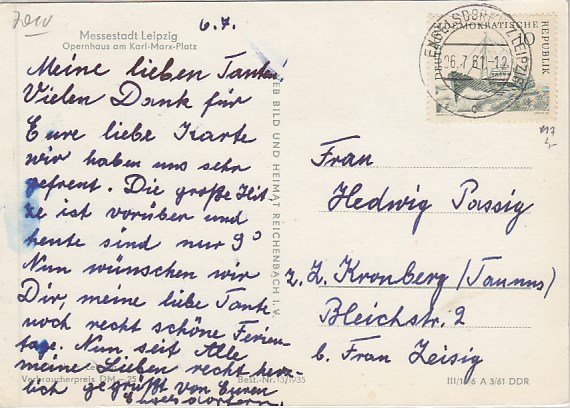 6.7.
Messestadt Leipzig
Opernhaus am Karl-Marx-Platz
Meine lieben Tanten!
Vielen Dank für
Eure liebe Karte
wir haben uns sehr
gefreut. Die große Hit-
ze ist vorüber und
heute sind nur 9°
Nun wünschen wir
Dir, meine liebe Tante
noch recht schöne Ferien-
tage. Nun seit Alle
meine Lieben recht herz-
lich gegrüßt von Euren
Verbraucherpreis DM –,25
Best.-Nr. 13/1935
VEB BILD UND HEIMAT REICHENBACH I. V.
DEUTSCHE DEMOKRATISCHE REPUBLIK
10
ENGELSDORF (LEIPZIG)
26.7.61.-12
Frau
Hedwig Passig
z. Z. Kronberg (Taunus)
Bleichstr. 2
b. Frau Zeisig
III/1/16 A 3/61 DDR